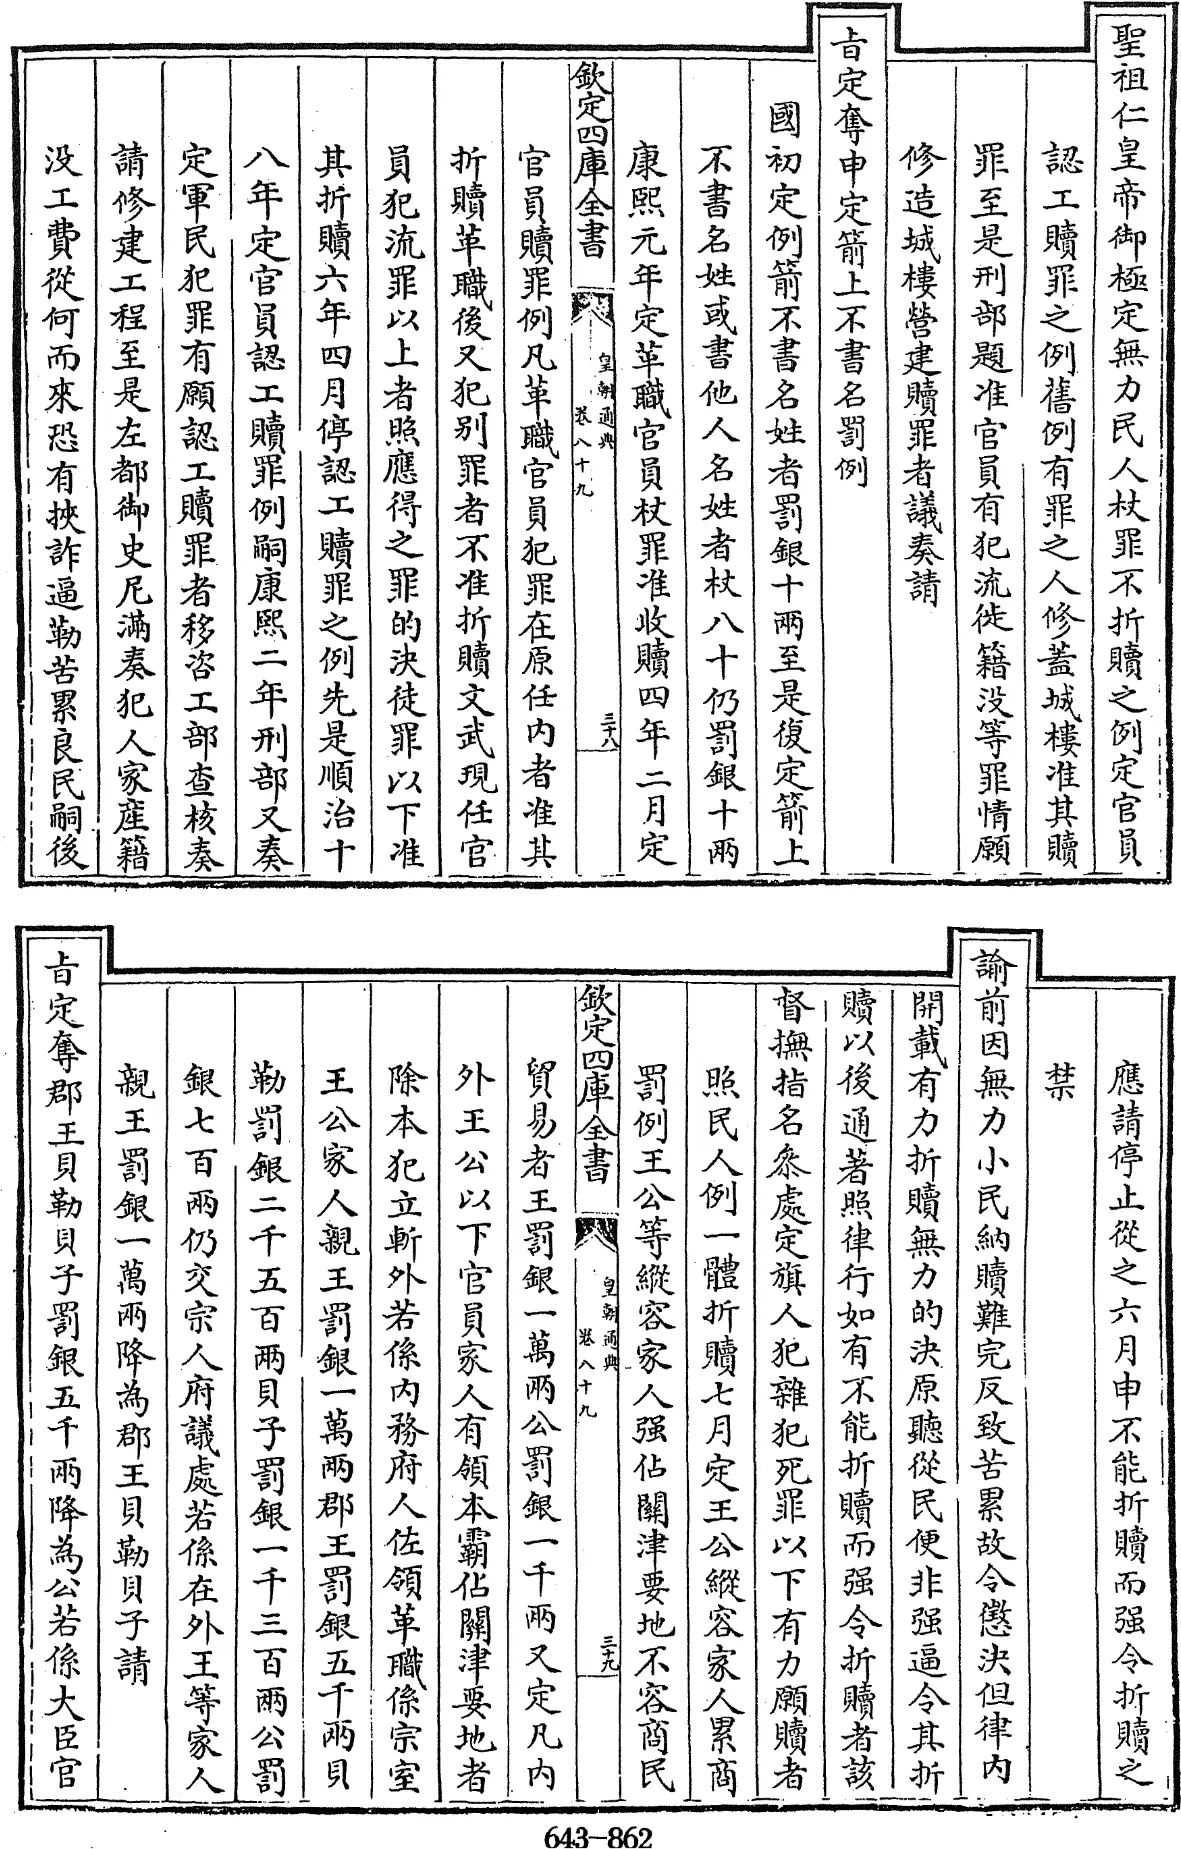 聖祖仁皇帝御極定無力民人杖罪不折贖之例定官員
認工贖罪之例舊例有罪之人修蓋城樓准其贖
罪至是刑部題准官員有犯流徙籍没等罪情願
修造城樓營建贖罪者議奏請
㫖定奪申定箭上不書名罰例
國初定例箭不書名姓者罰銀十兩至是復定箭上
不書名姓或書他人名姓者杖八十仍罰銀十兩
康熙元年定革職官員杖罪准收贖四年二月定
欽定四庫全書
皇朝通典
卷八十九
三十八
官員贖罪例凡革職官員犯罪在原任内者准其
折贖革職後又犯别罪者不准折贖文武現任官
員犯流罪以上者照應得之罪的決徒罪以下准
其折贖六年四月停認工贖罪之例先是順治十
八年定官員認工贖罪例嗣康熙二年刑部又奏
定軍民犯罪有願認工贖罪者移咨工部查核奏
請修建工程至是左都御史尼滿奏犯人家産籍
没工費從何而來恐有挾詐逼勒苦累良民嗣後
應請停止從之六月申不能折贖而强令折贖之
禁
諭前因無力小民納贖難完反致苦累故令懲決但律内
開載有力折贖無力的決原聽從民便非强逼令其折
贖以後通著照律行如有不能折贖而强令折贖者該
督撫指名叅處定旗人犯雜犯死罪以下有力願贖者
照民人例一體折贖七月定王公縱容家人累商
罰例王公等縱容家人强佔關津要地不容商民
欽定四庫全書
皇朝通典
卷八十九
三十九
貿易者王罰銀一萬兩公罰銀一千兩又定凡内
外王公以下官員家人有領本霸佔關津要地者
除本犯立斬外若係内務府人佐領革職係宗室
王公家人親王罰銀一萬兩郡王罰銀五千兩貝
勒罰銀二千五百兩貝子罰銀一千三百兩公罰
銀七百兩仍交宗人府議處若係在外王等家人
親王罰銀一萬兩降為郡王貝勒貝子請
㫖定奪郡王貝勒貝子罰銀五千兩降為公若係大臣官
643-862